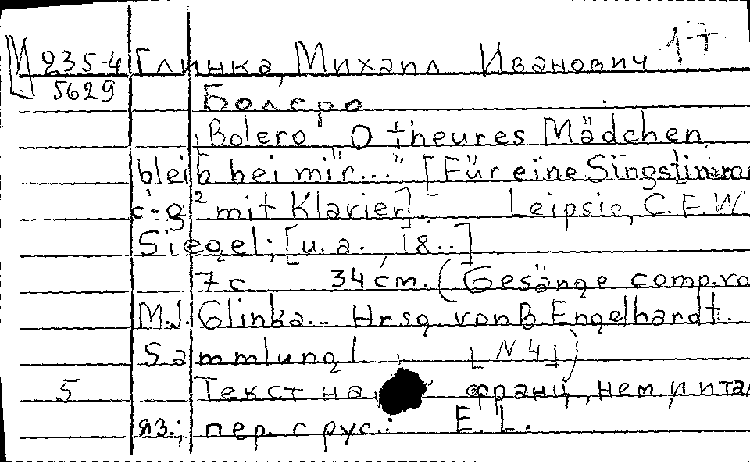 М 235-4 Глинка, Михаил Иванович 1+
5629 Болеро
„Bolero" „O theures Mädchen,
bleib bei mir..." [Für eine Singstimme
c-g² mit Klavier]. Leipsic, C. F. W.
Siegel; [u. a., 18..]
7 с. 34 cm. (Gesänge comp. vo
M. J. Glinka. Hrsg. von B. Engelhardt.
Sammlung I [N 4])
5 Текст на франц, нем. и ита
яз.; пер. с рус. E. L.